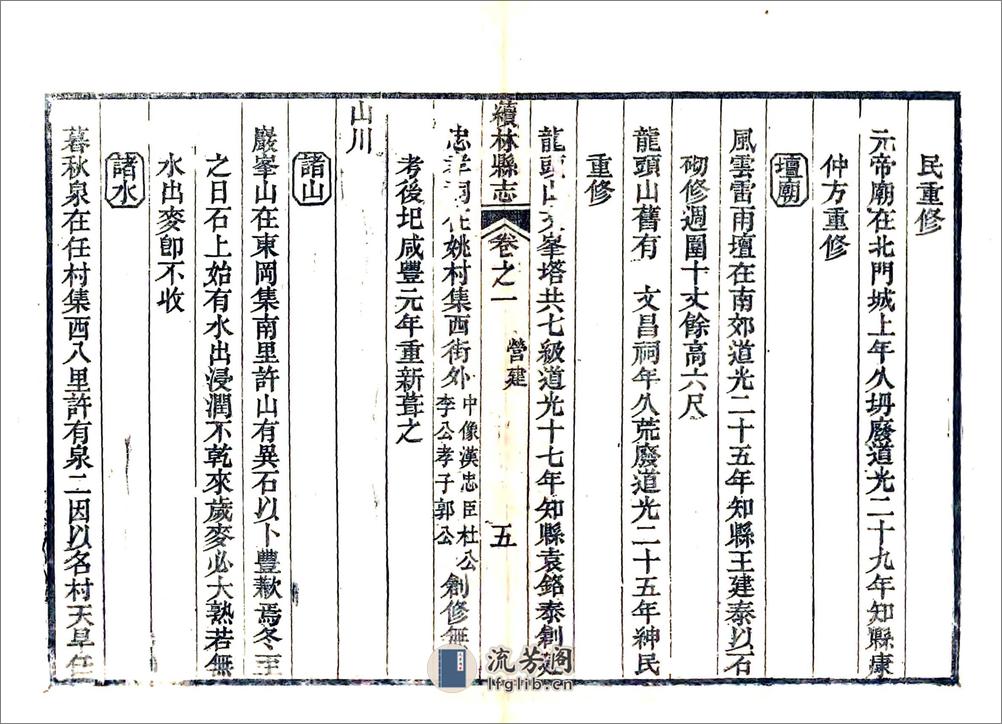 民重修
元帝廟在北門城上年久坍廢道光二十九年知縣康
仲方重修
壇廟
風雲雷雨壇在南郊道光二十五年知縣王建泰以石
砌修週圍十丈餘高六尺
龍頭山舊有 文昌祠年久荒廢道光二十五年紳民
重修
龍頭山文峯塔共七級道光十七年知縣袁銘泰創建
續林縣志 卷之一 營建 五
忠孝祠在姚村集西街外中像漢忠臣杜公李公孝子郭公創修無
考後圯咸豐元年重新葺之
山川
諸山
巖峯山在東岡集南里許山有異石以卜豐歉焉冬至
之日石上始有水出浸潤不乾來歲麥必大熟若無
水出麥卽不收
諸水
暮秋泉在任村集西八里許有泉二因以名村天旱任
流芳阁
lfglib.cn